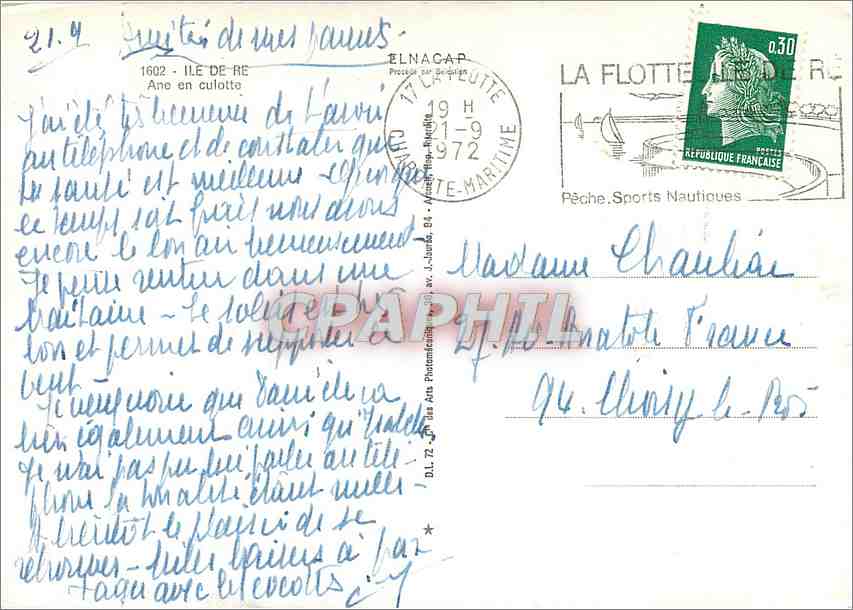 21.9 Amitiés de mes parents
1602 - ILE DE RE
Ane en culotte
ELNACAP
Procédé par Sélection
17 LA FLOTTE
19 H
21-9
1972
CHARENTE-MARITIME
LA FLOTTE ILE DE RÉ
Pêche. Sports Nautiques
0,30
POSTES
RÉPUBLIQUE FRANÇAISE
J'ai été très heureuse de t'avoir
au téléphone et de constater que
ta santé est meilleure
le temps soit frais nous avons
encore le bon air heureusement
Je pense rentrer dans une
huitaine - Le soleil est
bon et permet de supporter le
vent
que Dané va
bien également ainsi qu'Isabelle
Je n'ai pas pu lui parler au télé-
phone la tonalité étant nulle -
A bientôt le plaisir de se
retrouver - baisers à par
tager avec les cocottes
D.L. 72 - Cie des Arts Photomécaniques, 30, av. J.-Jaurès, 94 - Arcueil,
CPAPHIL
Madame
27. Anatole France
94. Choisy le Roi